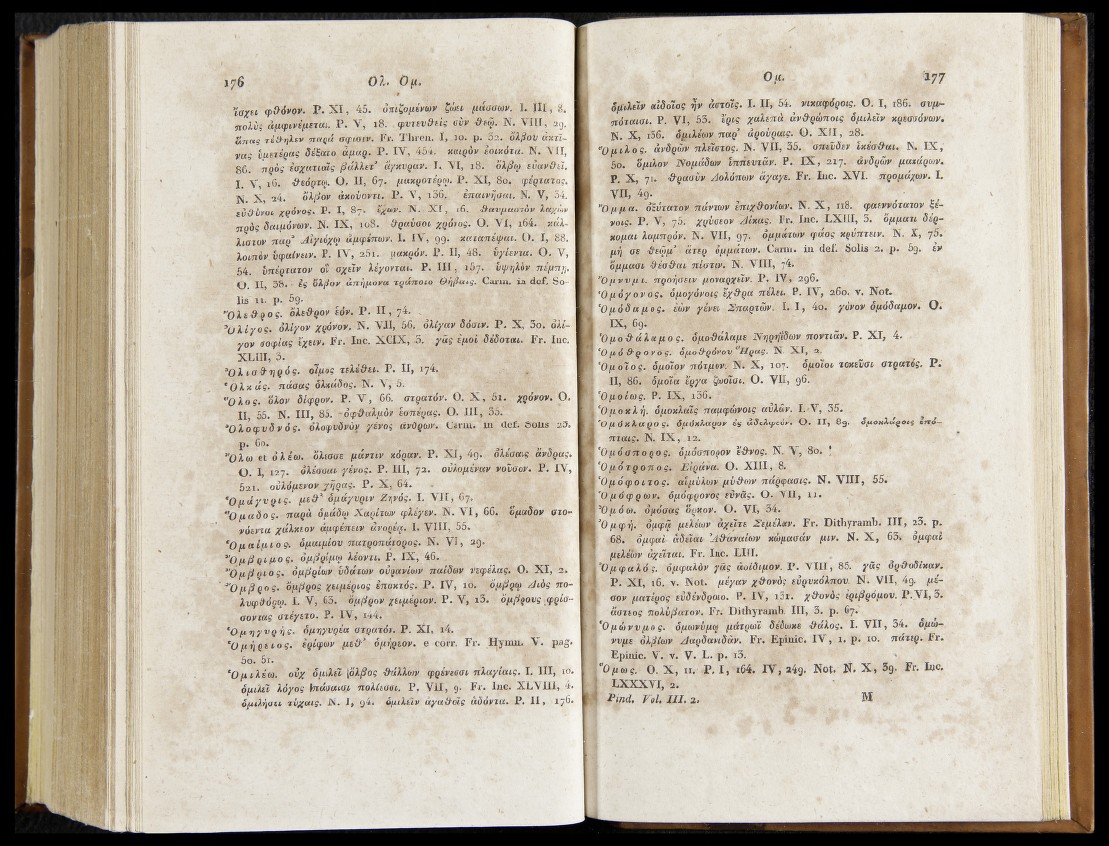 176 Ολ. Ομ.
ἴσχει φθόνον. P. XI, 45. ὀπιζομένων ζώει μάσσων. I. III, 8.
πολὺς ἀμφινέμεται. P. V, 18. φυτευθεὶς σὺν θεῷ. N. VIII, 29.
ἅπας τέθηλεν παρά σφισιν. Fr. Thren. I, 10. p. 52. ὄλβου ἀκτῖ-
νας ὑμετέρας δέξαιο ἁμαρ. P. IV, 454. καιρὸν ἐοικότα. N. VII,
86. πρὸς ἐσχατιαῖς βάλλετ' ἄγκυραν. I. VI, 18. ὄλβῳ εὐανθεῖ.
I. V, 16. θεόρτῳ. O. II, 67. μακροτέρῳ. P. XI, 80. φέρτατος.
N. X, 24. ὄλβον ἀκούοντι. P. V, 136. ἐπαινῆσαι. N. V, 34.
εὐθύνοι χρόνος. P. I, 87. ἔχων. N. XI, 16. θαυμαστὸν λαχὼν
πρὸς δαιμόνων. N. IX, 108. θραύσοι χρόνος. O. VI, 164. κάλ-
λιστον παρ' Αἰγιόχῳ ἀμφέπων. I. IV, 99. καταπέψαι. O. I, 88.
λοιπὸν ὑφαίνειν. P. IV, 251. μακρόν. P. II, 48. ὑγίεντα. O. V,
54. ὑπέρτατον οἳ σχεῖν λέγονται. P. III, 157. ὑψηλὸν πέμπῃ.
O. II, 38. ἐς ὄλβον ἀπήμονα τράποιο Θήβαις. Carm. in def. So-
lis 11. p. 59.
Ὄλεθρος. ὄλεθρον ἑόν. P. II, 74.
Ὀλίγος. ὀλίγον χρόνον. N. VII, 56. ὀλίγαν δόσιν. P. X, 30. ὀλί-
γον σοφίας ἔχειν. Fr. Inc. XCIX, 3. γᾶς ἐμοὶ δέδοται. Fr. Inc.
XLIII, 3.
Ὀλισθηρός. οἶμος τελέθει. P. II, 174.
Ὁλκάς. πάσας ὁλκάδος. N. V, 3.
Ὅλος. ὅλον δίφρον. P. V, 66. στρατόν. O. X, 51. χρόνον. O.
II, 55. N. III, 85. ὀφθαλμὸν ἑσπέρας. O. III, 35.
Ὀλοφυδνός. ὀλοφυδνὸν γένος ἀνδρῶν. Carm. in def. Solis 23.
p. 60.
Ὄλω et ὀλέω. ὄλισσε μάντιν κόραν. P. XI, 49. ὀλέσαις ἄνδρας.
O. I, 127. ὀλέσσαι γένος. P. III, 72. οὐλομέναν νοῦσον. P. IV,
521. οὐλόμενον γῆρας. P. X, 64.
Ὁμάγυρις. μεθ' ὁμάγυριν Ζηνός. I. VII, 67.
Ὅμαδος. παρὰ ὁμάδῳ Χαρίτων φλέγεν. N. VI, 66. ὅμαδον στο-
νόεντα χάλκεον ἀμφέπειν ἀνορέᾳ. I. VIII, 55.
Ὁμαίμιος. ὁμαιμίου πατροπάτορος. N. VI, 29.
Ὄμβριμος. ὀμβρίμῳ λέοντι. P. IX, 46.
Ὄμβριος. ὀμβρίων ὑδάτων οὐρανίων παίδων νεφέλας. O. XI, 2.
Ὄμβρος. ὄμβρος χειμέριος ἐπακτός. P. IV, 10. ὄμβρῳ Διὸς πο-
λυφθόρῳ. I. V, 63. ὄμβρον χειμέριον. P. V, 13. ὄμβρους φρίσ-
σοντας στέγετο. P. IV, 144.
Ὁμηγυρής. ὁμηγυρέα στρατόν. P. XI, 14.
Ὁμήρειος. ἐρίφων μεθ' ὁμήρεον. e corr. Fr. Hymn. V. pag.
50. 51.
Ὁμιλέω. οὐχ ὁμιλεῖ ὄλβος θάλλων φρένεσσι πλαγίαις. I. III, 10.
ὁμιλεῖ λόγος πάσαισι πολίεσσι. P. VII, 9. Fr. Inc. XLVIII, 4.
ὁμιλήσει τύχαις. N. I, 94. ὁμιλεῖν ἀγαθοῖς ἁδόντα. P. II, 176.
Ομ. 177
ὁμιλεῖν αἰδοῖος ἦν ἀστοῖς. I. II, 54. νικαφόροις. O. I, 186. συμ-
πόταισι. P. VI, 53. ἔρις χαλεπὰ ἀνθρώποις ὁμιλεῖν κρεσσόνων.
N. X, 136. ὁμιλέων παρ' ἀρούραις. O. XII, 28.
Ὅμιλος. ἀνδρῶν πλεῖστος. N. VII, 35. σπεῦδεν ἱκέσθαι. N. IX,
50. ὅμιλον Νομάδων ἱππευτᾶν. P. IX, 217. ἀνδρῶν μακάρων.
P. X, 71. θρασὺν Δολόπων ἄγαγε. Fr. Inc. XVI. προμάχων. I.
VII, 49.
Ὄμμα. ὀξύτατον πάντων ἐπιχθονίων. N. X, 118. φαεννότατον ξέ-
νοις. P. V, 75. χρύσεον Δίκας. Fr. Inc. LXIII, 3. ὄμματι δέρ-
κομαι λαμπρόν. N. VII, 97. ὀμμάτων φάος κρύπτειν. N. X, 75.
μή σε θεῶμ' ἄτερ ὀμμάτων. Carm. in def. Solis 2. p. 59. ἐν
ὄμμασι θέσθαι πίστιν. N. VIII, 74.
Ὄμνυμι. προήσειν μοναρχεῖν. P. IV, 296.
Ὁμόγονος. ὁμογόνοις ἔχθρα πέλει. P. IV, 260. v. Not.
Ὁμόδαμος. ἐὼν γένει Σπαρτῶν. I. I, 40. γόνον ὁμόδαμον. O.
IX, 69.
Ὁμοθάλαμος. ὁμοθάλαμε Νηρηΐδων ποντιᾶν. P. XI, 4.
Ὁμόθρονος. ὁμοθρόνου Ἥρας. N. XI, 2.
Ὁμοῖος. ὁμοῖον πότμον. N. X, 107. ὁμοῖοι τοκεῦσι στρατός. P.
II, 86. ὁμοῖα ἔργα ζωοῖσι. O. VII, 96.
Ὁμοίως. P. IX, 136.
Ὁμοκλή. ὁμοκλαῖς παμφώνοις αὐλῶν. I. V, 35.
Ὁμόκλαρος. ὁμόκλαρον ἐς ἀδελφεόν. O. II, 89. ὁμοκλάροις ἐπό-
πταις. N. IX, 12.
Ὁμόσπορος. ὁμόσπορον ἔθνος. N. V, 80.
Ὁμότροπος. Εἰράνα. O. XIII, 8.
Ὁμόφοιτος. αἱμύλων μύθων πάρφασις. N. VIII, 55.
Ὁμόφρων. ὁμόφρονος εὐνᾶς. O. VII, 11.
Ὀμόω. ὀμόσας ὅρκον. O. VI, 34.
Ὀμφή. ὀμφῇ μελέων ἀχεῖτε Σεμέλαν. Fr. Dithyramb. III, 23. p.
68. ὀμφαὶ ἁδεῖαι Ἀθαναίων κώμασάν μιν. N. X, 63. ὀμφαὶ
μελέων ἀχεῖται. Fr. Inc. LIII.
Ὀμφαλός. ὀμφαλὸν γᾶς ἀοίδιμον. P. VIII, 85. γᾶς ὀρθοδίκαν.
P. XI, 16. v. Not. μέγαν χθονὸς εὐρυκόλπου. N. VII, 49. μέ-
σον ματέρος εὐδένδροιο. P. IV, 131. χθονὸς ἐριβρόμου. P. VI, 3.
ἄστεος πολύβατον. Fr. Dithyramb. III, 3. p. 67.
Ὁμώνυμος. ὁμωνύμῳ μάτρωϊ δέδωκε θάλος. I. VII, 34. ὁμώ-
νυμε ὀλβίων Δαρδανιδᾶν. Fr. Epinic. IV, 1. p. 10. πάτερ. Fr.
Epinic. V. v. V. L. p. 13.
Ὅμως. O. X, 11. P. I, 164. IV, 249. Not. N. X, 39. Fr. Inc.
LXXXVI, 2.
Pind. Vol. III. 2. M